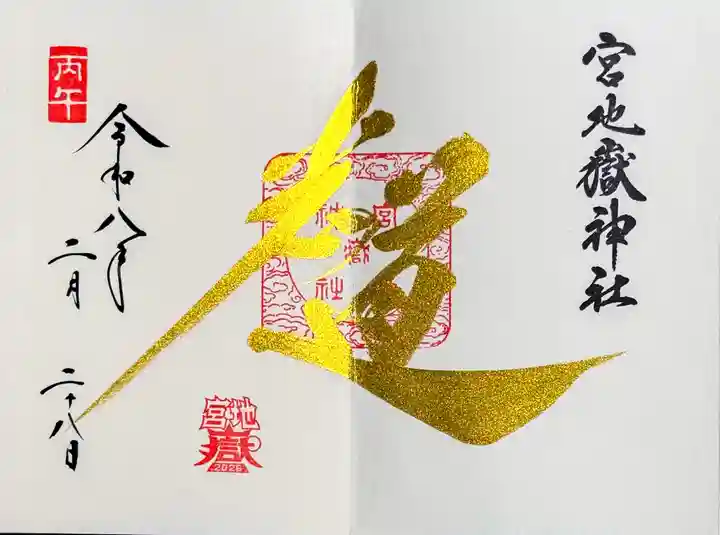 宮地嶽神社
光の道
宮地嶽
神社
丙午
令和八年
二月
二十八日
宮地
嶽
2026